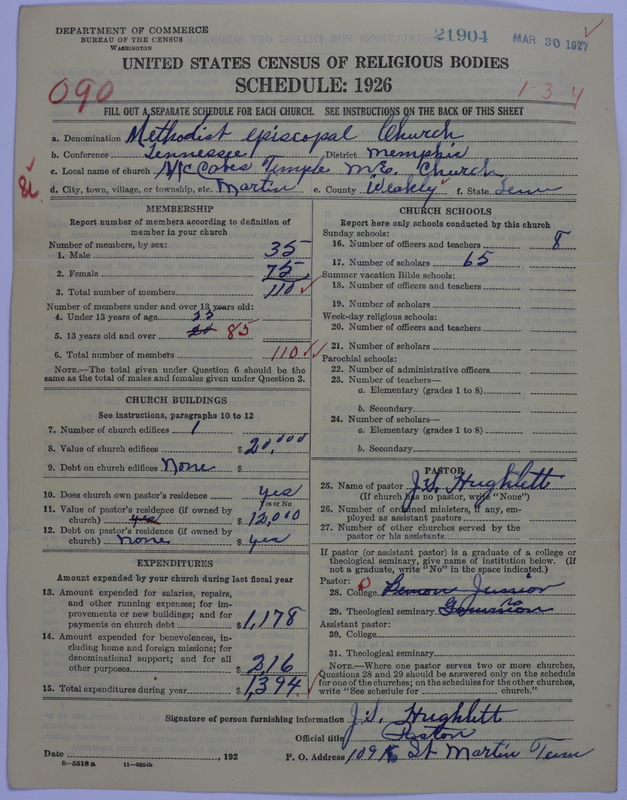 DEPARTMENT OF COMMERCE
BUREAU OF THE CENSUS
WASHINGTON
21904 MAR 30 1927
UNITED STATES CENSUS OF RELIGIOUS BODIES
SCHEDULE: 1926
090
1 3 4
FILL OUT A SEPARATE SCHEDULE FOR EACH CHURCH. SEE INSTRUCTIONS ON THE BACK OF THIS SHEET
a. Denomination Methodist episcopal Church
b. Conference Tennessee District Memphis
c. Local name of church McCabes Temple M.E. Church
d. City, town, village, or township, etc. Martin e. County Weakly f. State Tenn
MEMBERSHIP
Report number of members according to definition of
member in your church
Number of members, by sex:
1. Male 35
2. Female 75
3. Total number of members 110
Number of members under and over 13 years old:
4. Under 13 years of age
5. 13 years old and over 85
6. Total number of members 110
NOTE.—The total given under Question 6 should be the
same as the total of males and females given under Question 3.
CHURCH BUILDINGS
See instructions, paragraphs 10 to 12
7. Number of church edifices 1
8. Value of church edifices $20,000
9. Debt on church edifices None $
10. Does church own pastor's residence yes
Yes or No
11. Value of pastor's residence (if owned by
church) yes $12,000
12. Debt on pastor's residence (if owned by
church) none $ yes
EXPENDITURES
Amount expended by church during last fiscal year
13. Amount expended for salaries, repairs,
and other running expenses; for im-
provements or new buildings; and for
payments on church debt $1,178
14. Amount expended for benevolences, in-
cluding home and foreign missions; for
denominational support; and for all
other purposes 216
15. Total expenditures during year $1,394
CHURCH SCHOOLS
Report here only schools conducted by this church
Sunday schools:
16. Number of officers and teachers 8
17. Number of scholars 65
Summer vacation Bible schools:
18. Number of officers and teachers
19. Number of scholars
Week-day religious schools:
20. Number of officers and teachers
21. Number of scholars
Parochial schools:
22. Number of administrative officers
23. Number of teachers—
a. Elementary (grades 1 to 8)
b. Secondary
24. Number of scholars—
a. Elementary (grades 1 to 8)
b. Secondary
PASTOR
25. Name of pastor J.S. Hughlett
(If church has no pastor, write "None")
26. Number of ordained ministers, if any, em-
ployed as assistant pastors
27. Number of other churches served by the
pastor or his assistants
If pastor (or assistant pastor) is a graduate of a college or
theological seminary, give name of institution below. (If
not a graduate, write "No" in the space indicated.)
Pastor:
28. College Junior
29. Theological seminary
Assistant pastor:
30. College
31. Theological seminary
NOTE.—Where one pastor serves two or more churches,
Questions 28 and 29 should be answered only on the schedule
for one of the churches; on the schedules for the other churches,
write "See schedule for church."
Signature of person furnishing information J.S. Hughlett
Official title Pastor
Date , 192 P. O. Address 109 St Martin Tenn
8—5518a 11—9554b